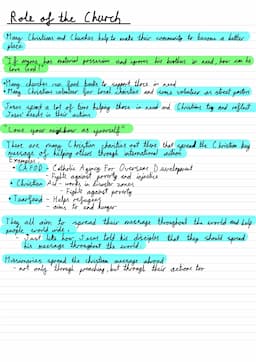 Role of the Church
• Many Christians and Churches help to make their community to become a better
place.
"If anyone has material possession and ignores his brothers in need, how can he
love God?"
• Many churches run food banks to support those in need
• Many Christians volunteer for local charities and some volunteer as street pastors
Jesus spent a lot of time helping those in need and Christians try and reflect
Jesus' deeds in their actions
"Love your neighbour as yourself"
There are many Christian charities out there that spread the Christian key
message of helping others through international action
Examples:
• CAFOD - Catholic Agency For Overseas Development
- Fights against poverty and injustice
• Christian Aid - works in disaster zones
- Fights against poverty
• Tearfund - Helps refugees
- aims to end hunger
They all aim to spread their message throughout the world and help
people world wide.
- Just like how Jesus told his disciples that they should spread
his message throughout the world.
Missionaries spread the christian message abroad
- not only through preaching, but through their actions too